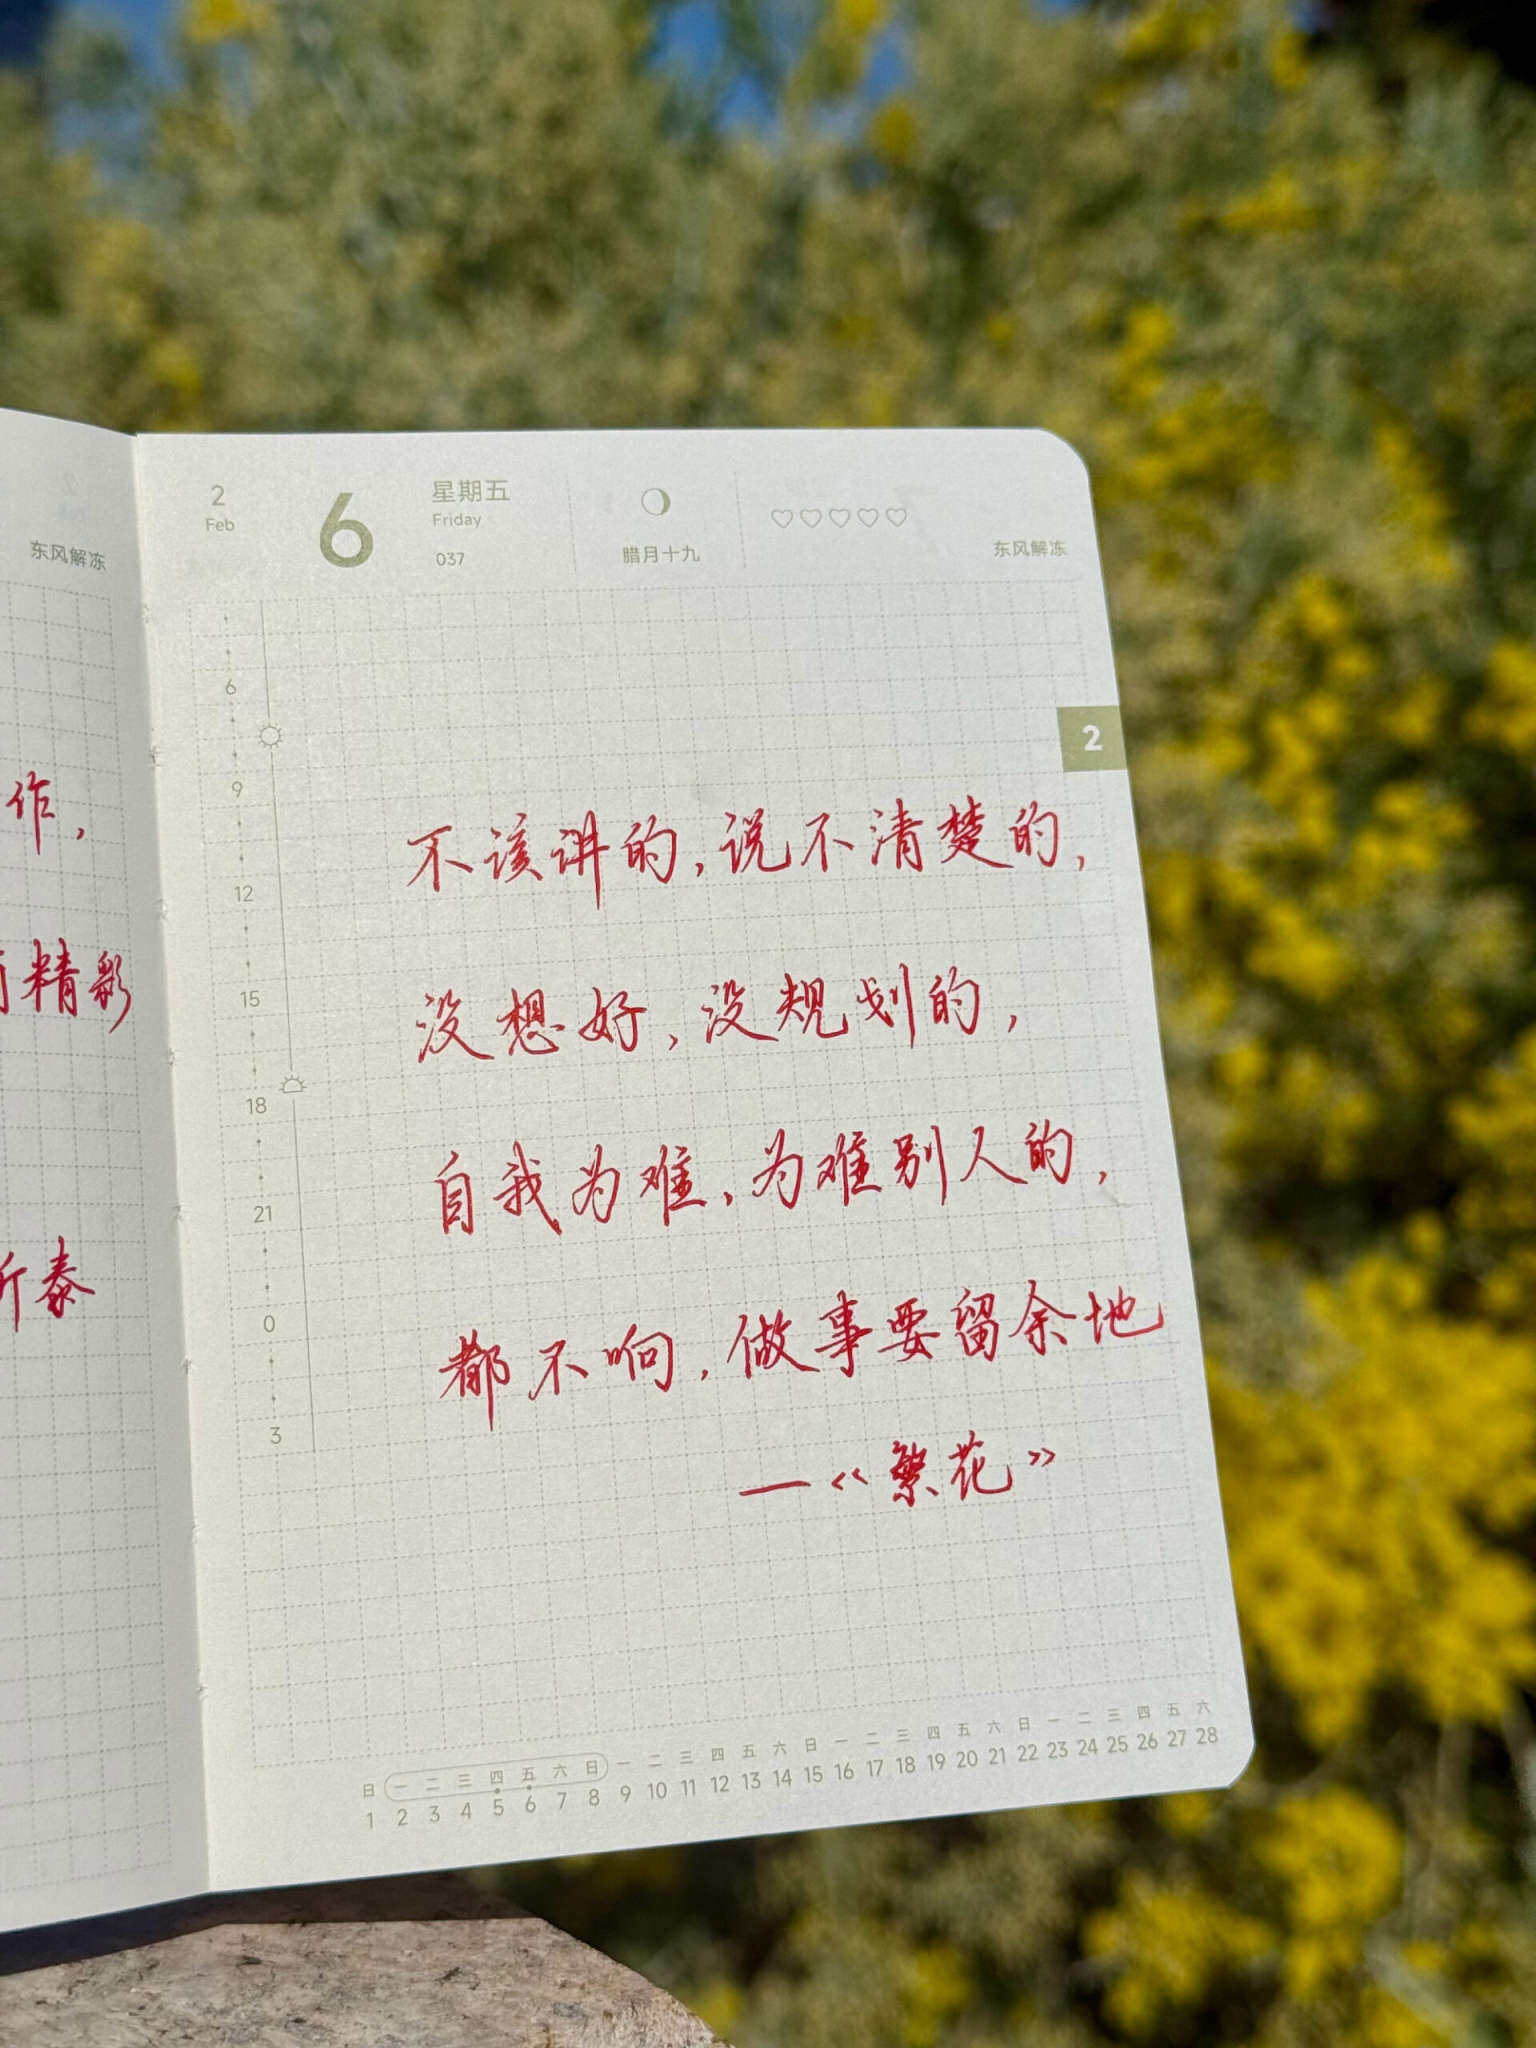 东风解冻
作，
精彩
泰
2
Feb
6
星期五
Friday
037
腊月十九
东风解冻
2
6
9
12
15
18
21
0
3
不该讲的，说不清楚的，
没想好，没规划的，
自我为难，为难别人的，
都不响，做事要留余地
—《繁花》
日 一 二 三 四 五 六 日 一 二 三 四 五 六 日 一 二 三 四 五 六 日 一 二 三 四 五 六
1 2 3 4 5 6 7 8 9 10 11 12 13 14 15 16 17 18 19 20 21 22 23 24 25 26 27 28